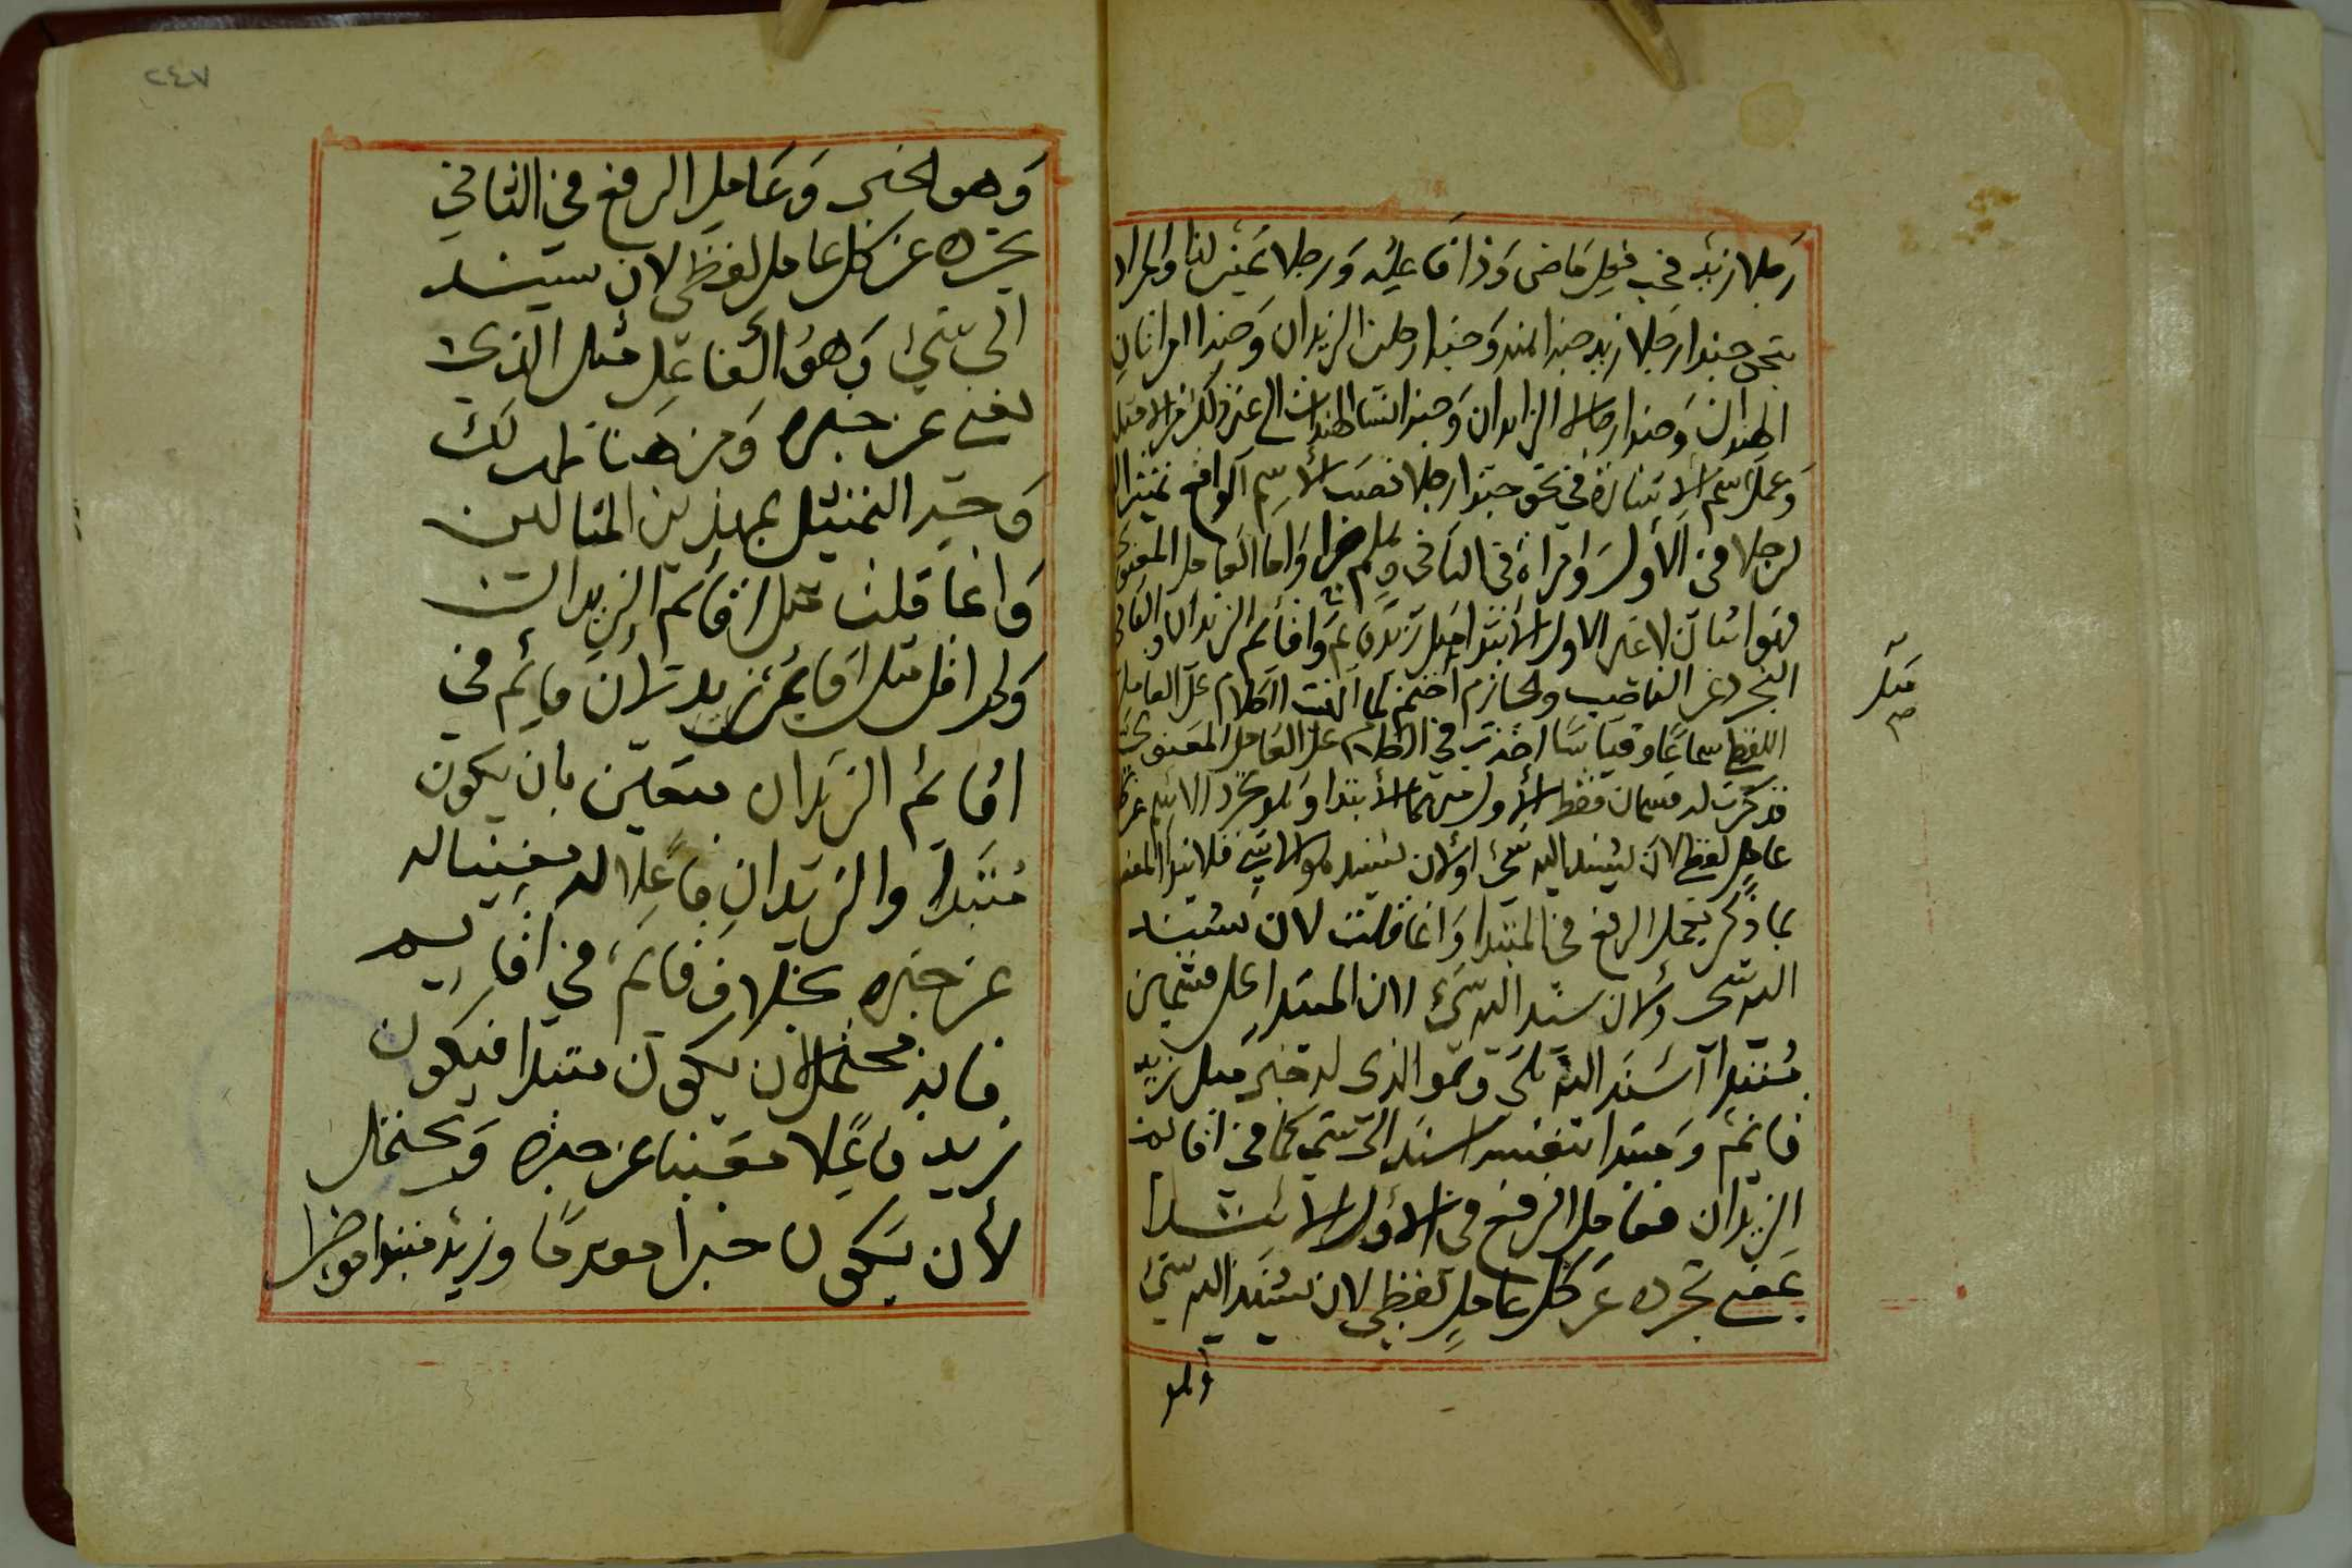 رجلا زيد فحب فعل ماضى وذا فاعله ورجلا تمييز لنا والمراد
حبذا رجلا زيد حبذا هند وحبذا رجلين الزيدان وحبذا امراتان
الهندان وحبذا رجالا الزيدون وحبذا نسا الهندات الى غير ذلك
وعمل اسم الاشارة فى نحو حبذا رجلا نصب الاسم الواقع تمييزا
لرجلا فى الأول وامراة فى الثانى وأما العامل المعنوى
فهو اثنان لا غير الاول الابتدا مثل زيد قائم واقائم الزيدان والثانى
التجرد عن الناصب والجازم لما انهيت الكلام على العامل
اللفظى سماعا وقياسا اخذت فى الكلام على العامل المعنوى
فذكرت له قسمان فقط الأول منهما الأبتدا وهو تجرد الاسم عن
عامل لفظى لان يسند اليه شئ اولان يسند هو الى شئ
بما ذكر يعمل الرفع فى المبتدا وانما قلت لان يسند
اليه شى ولان يسند الى شئ لان المبتدا على قسمين
مبتدا اسند اليه شى وهو الذى له خبر مثل زيد
قائم ومبتدا بنفسه اسند الى شى كما فى اقائم
الزيدان فعامل الرفع فى الأول الابتدا
يعنى تجرده عن كل عامل لفظى لان يسند اليه شئ
وهو
مثل
صح
٢٤٧
وهو الخبر وعامل الرفع في الثاني
تجرده عن كل عامل لفظى لان يسند
الى شئ وهو الفاعل مثل الذى
يغنى عن خبره ومن هنا ظهر لك
وجه التمثيل بهذين المثالين
وانما قلت مثل اقائم الزيدان
ولم اقل مثل اقائم زيد لان قائم في
اقائم الزيدان متعين بان يكون
مبتدا والزيدان فاعلا له مغنيا له
عن خبره بخلاف قائم في اقائم
فانه محتمل لان يكون مبتدا فيكون
زيد فاعلا مغنيا عن خبره ويحتمل
لأن يكون خبرا مقدما وزيد مبتدا موخرا